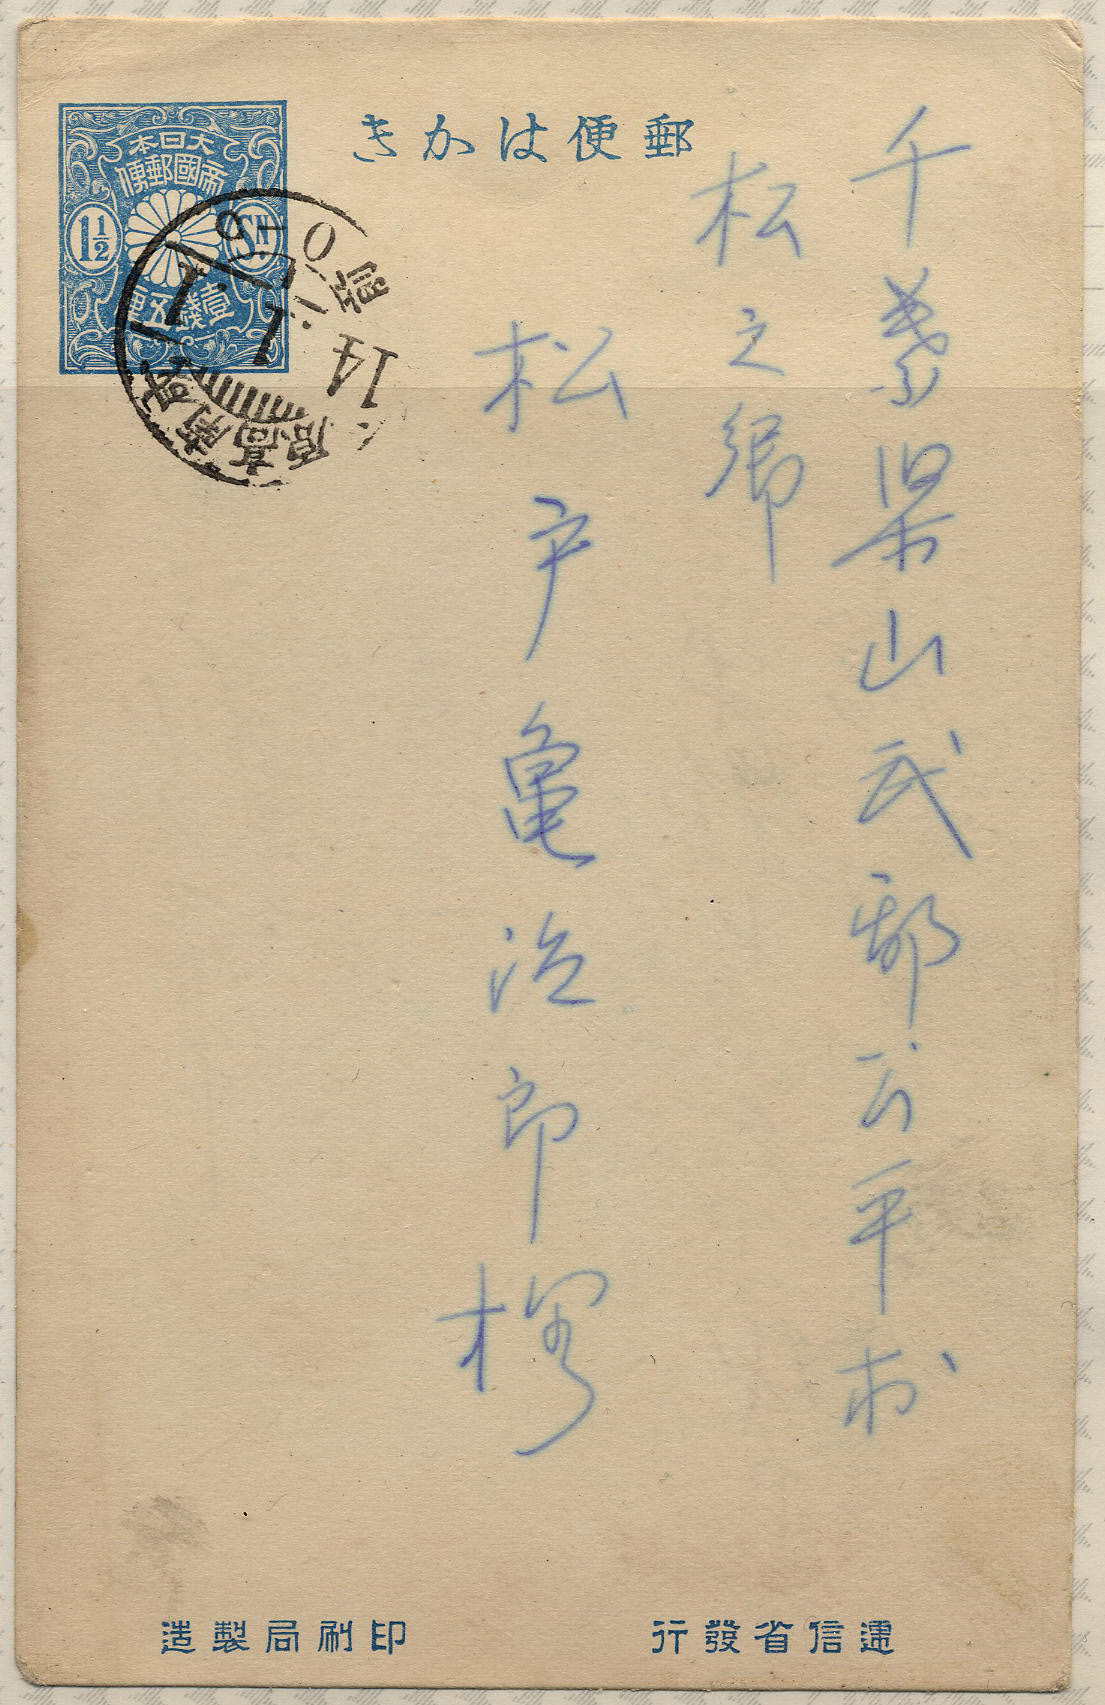 郵便はかき
大日本
帝國郵便
1½ SN
壹錢五厘
14
1.1
千葉県山武郡公平村
松之郷
松戸亀治郎様
遞信省發行
印刷局製造